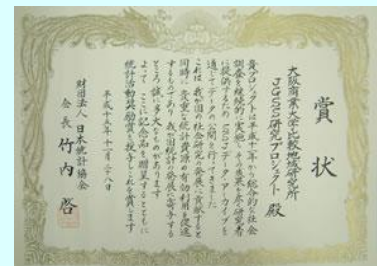 賞状
大阪商業大学比較地域研究所
JGSS研究プロジェクト 殿
貴プロジェクトは平成十一年から総合的な社会
調査を継続的に実施しその成果を広く研究者
に提供するため SSJデータ・アーカイブを
通じてデータの公開を行ってきました
これは我が国の社会研究の発展に貢献すると
同時に貴重な統計資源の有効利用を促進
するものであり我が国統計の発展に寄与する
ところ誠に多大なものがあります
よってここに記念品を贈呈するとともに
統計活動奨励賞を授与しこれを賞します
平成十五年十一月二十八日
財団法人 日本統計協会
会長 竹内 啓